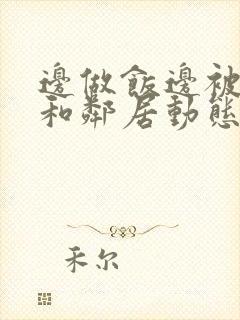 邊做飯邊被
和鄰居動態
禾尔